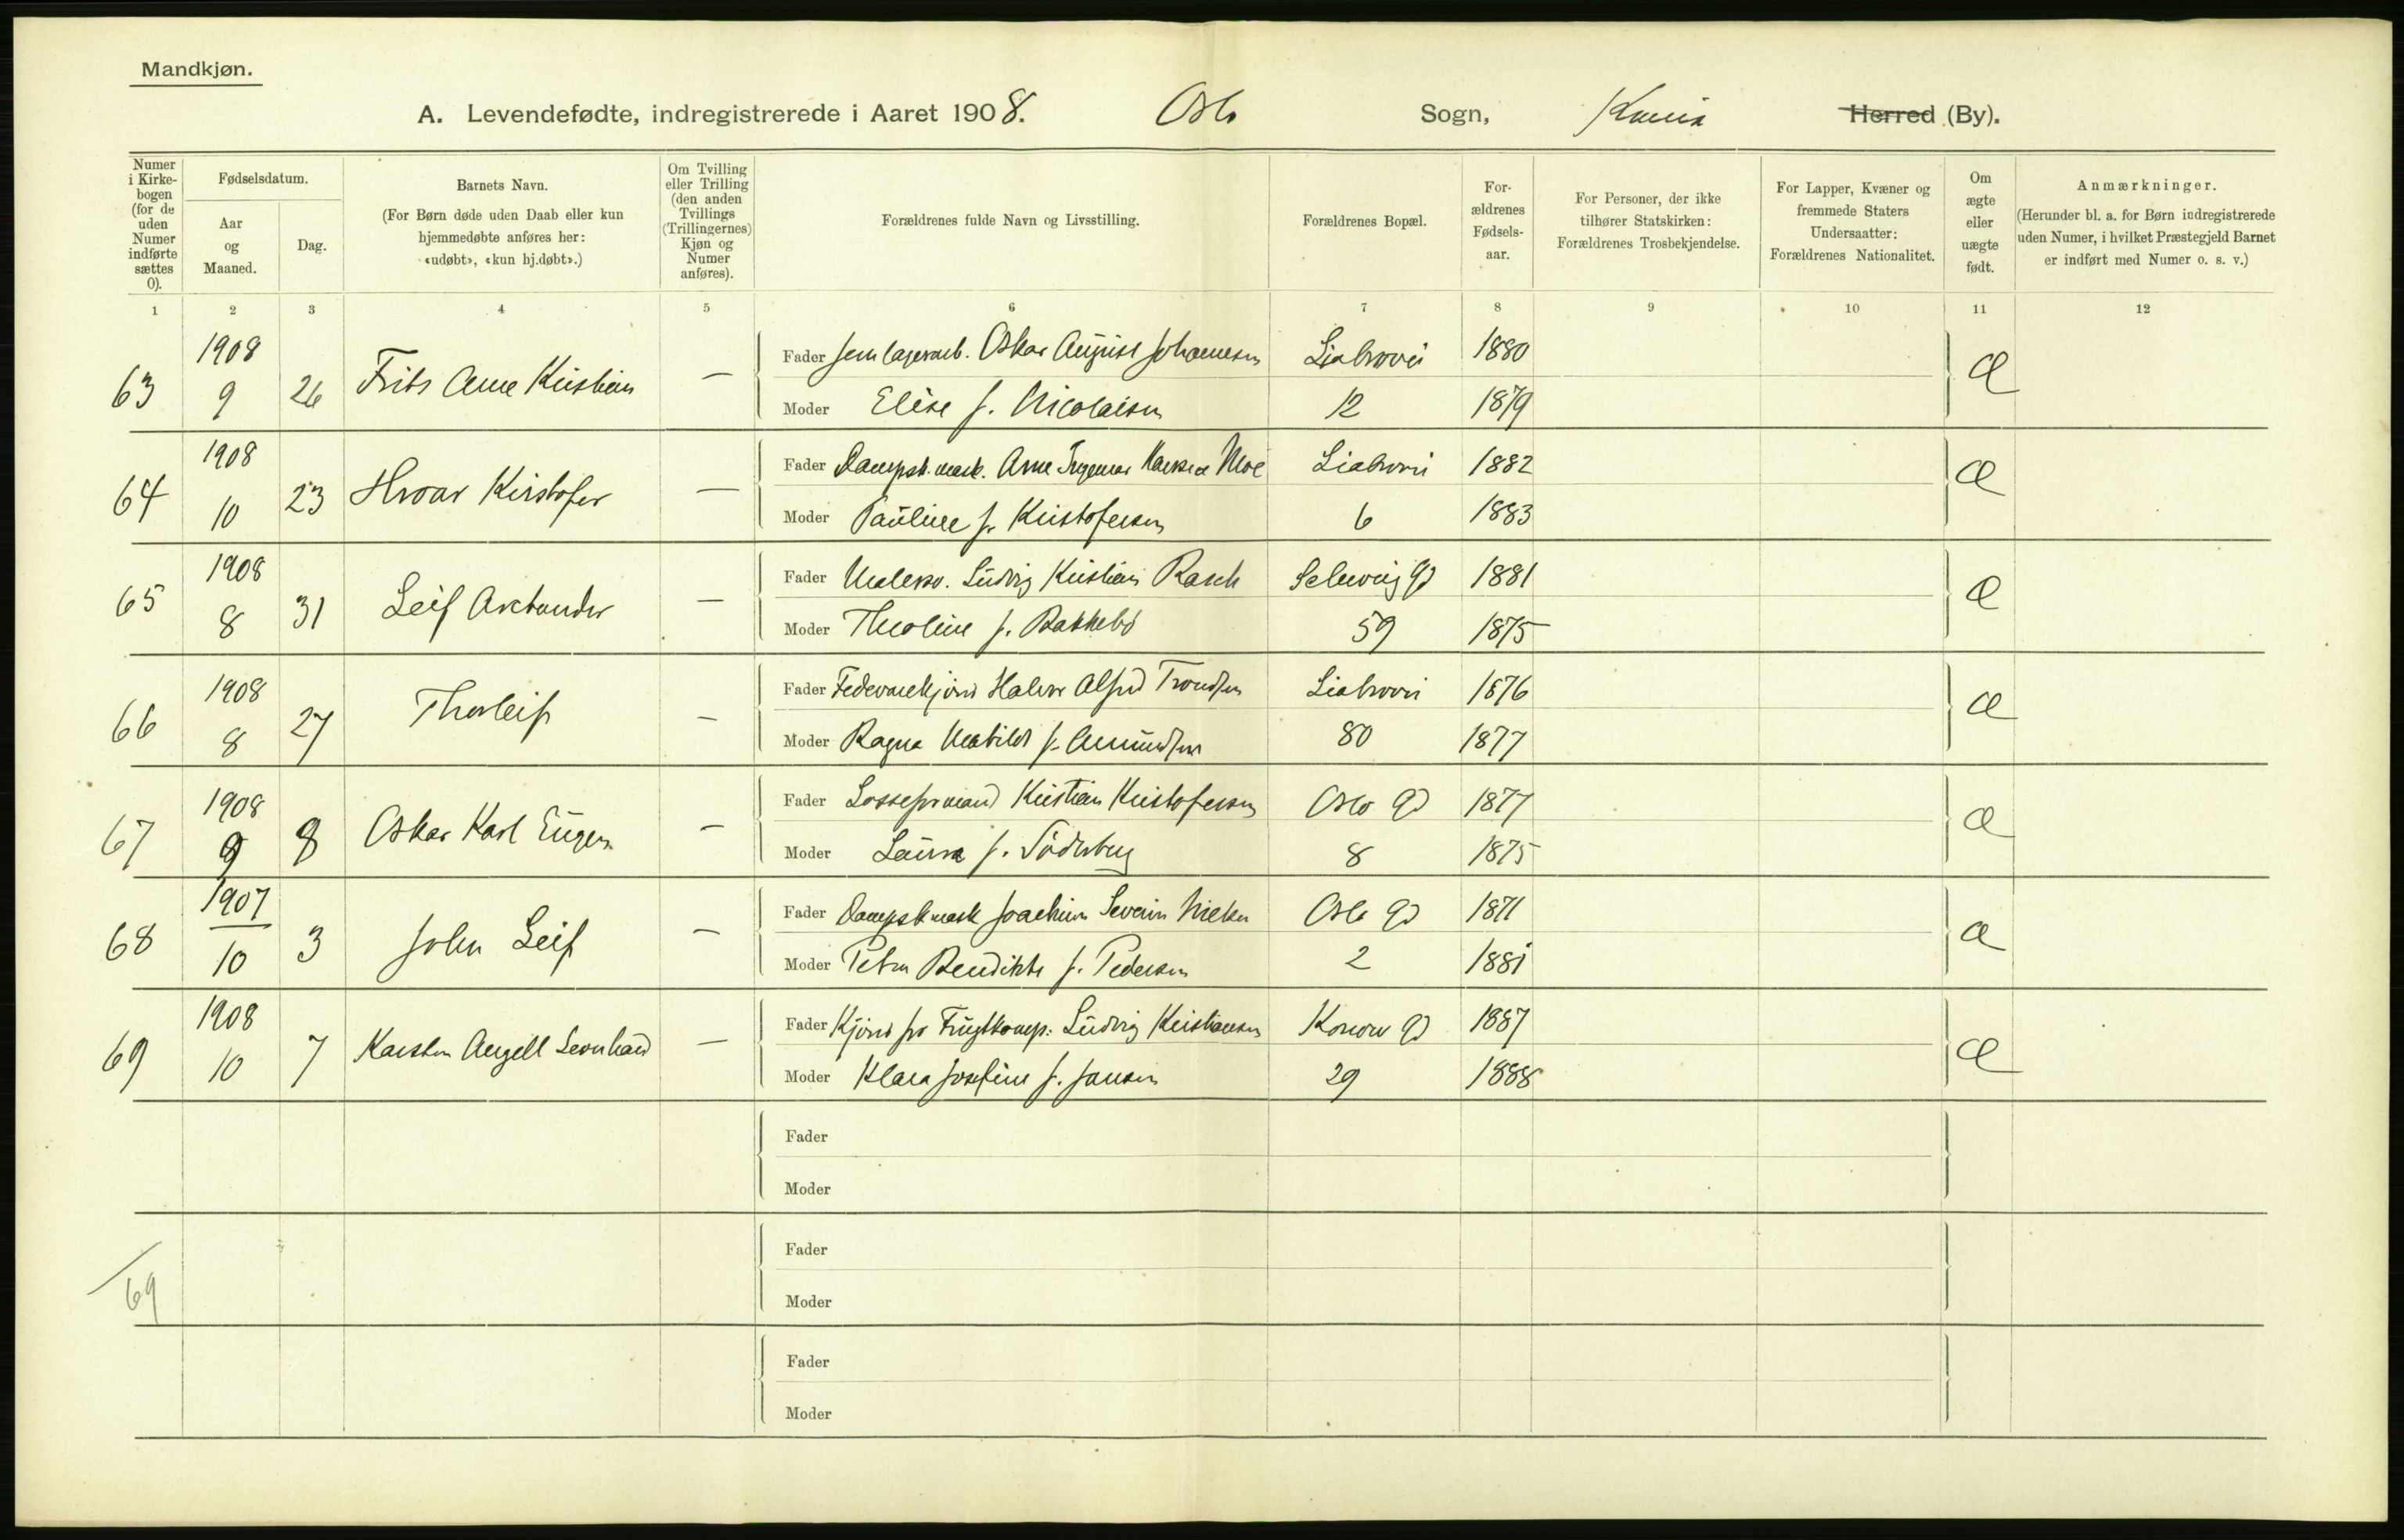 Mandkjøn.
A. Levendefødte, indregistrerede i Aaret 1908. Oslo Sogn, Kr.nia Herred (By).
Numer i Kirkebogen (for de uden Numer indførte sættes 0).
Fødselsdatum.
Aar og Maaned.
Dag.
Barnets Navn.
(For Børn døde uden Daab eller kun hjemmedøbte anføres her: «udøbt», «kun hj.døbt».)
Om Tvilling eller Trilling (den anden Tvillings (Trillingernes) Kjøn og Numer anføres).
Forældrenes fulde Navn og Livsstilling.
Forældrenes Bopæl.
Forældrenes Fødselsaar.
For Personer, der ikke tilhører Statskirken: Forældrenes Trosbekjendelse.
For Lapper, Kvæner og fremmede Staters Undersaatter: Forældrenes Nationalitet.
Om ægte eller uægte født.
Anmærkninger.
(Herunder bl. a. for Børn indregistrerede uden Numer, i hvilket Præstegjeld Barnet er indført med Numer o. s. v.)
1 2 3 4 5 6 7 8 9 10 11 12
63 1908 9 26 Frits Arne Kristian — Fader Jernlagerarb. Oskar August Johannesen Liabrovei 1880 Æ
Moder Elise f. Nicolaisen 12 1879
64 1908 10 23 Hroar Kristofer — Fader Dampsk.mask. Arne Ingemar Hansen Moe Liabrovei 1882 Æ
Moder Pauline f. Kristofersen 6 1883
65 1908 8 31 Leif Arctander — Fader Malersv. Ludvig Kristian Rasch Schweig Gd 1881 Æ
Moder Theoline f. Bakkebö 59 1875
66 1908 8 27 Thorleif — Fader Halvor Alfred Trondsen Liabrovei 1876 Æ
Moder Ragna Mathilde f. Amundsen 80 1877
67 1908 9 8 Oskar Karl Eugen — Fader Losseformand Kristian Kristofersen Oslo Gd 1877 Æ
Moder Laura f. Söderberg 8 1875
68 1907 10 3 John Leif — Fader Dampskmask Joachim Severin Nielsen Oslo Gd 1871 Æ
Moder Petra Bendikte f. Pedersen 2 1881
69 1908 10 7 Karsten Angell Leonhard — Fader Kjörer for Frugtkomp. Ludvig Kristiansen Konow Gd 1887 Æ
Moder Klara Josefine f. Jansen 29 1888
Fader
Moder
69 Fader
Moder
Fader
Moder